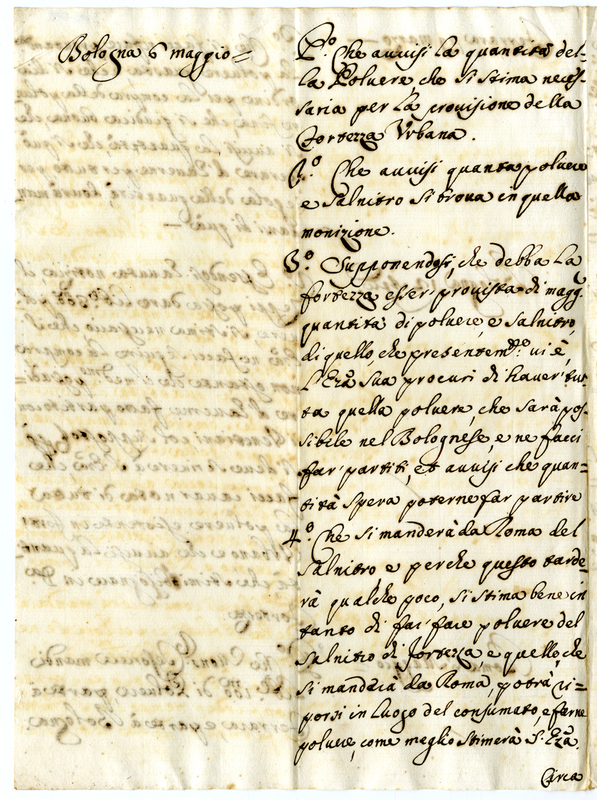 Bologna 6 maggio =
P.o Che avvisi la quantità del-
la Polvere che si stima neces-
saria per la provisione della
fortezza Urbana.
2.o Che avvisi quanta polvere
e salnitro si trova in quella
monizione.
3.o Supponendosi, che debba la
fortezza esser provista di magg.
quantità di polvere, e salnitro,
di quello, che presentem.te vi è,
l'Ezza Sua procuri di haver tut-
ta quella polvere, che sarà pos-
sibile nel Bolognese, e ne facci
far partiti, et avvisi che quan-
tità spera poterne far partire
4.o Che si manderà da Roma del
salnitro e perche questo tarde-
rà qualche poco, si stima bene in
tanto di far fare polvere del
salnitro di fortezza, e quello, che
si manderà da Roma, potrà ri=
porsi in luogo del consumato, e farne
polvere, come meglio stimerà S. Ezza.
Circa